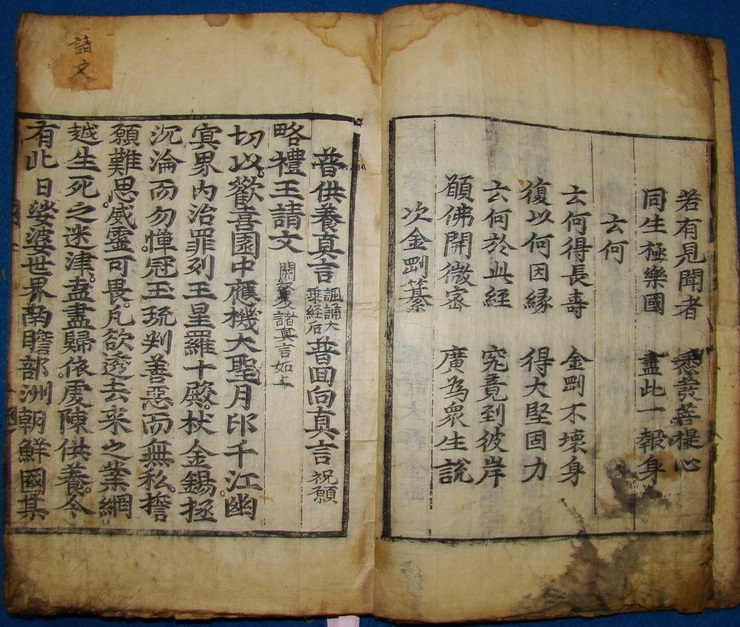 若有見聞者 悉發菩提心
同生極樂國 盡此一報身
云何
云何得長壽 金剛不壞身
復以何因緣 得大堅固力
云何於此經 究竟到彼岸
願佛開微密 廣爲衆生說
次金剛纂
請文
普供養真言 諷誦大乘經 普回向真言 祝願
略禮王請文 諸真言如上
切以。歡喜園中應機大聖月印千江幽
冥界內治罪列王星羅十殿。杖金錫拯
沉淪而勿憚冠玉琉判善惡而無私。擔
願難思。威靈可畏。凡欲透去來之業網
越生死之迷津。盍盡歸依虔陳供養。今
有此日娑婆世界南瞻部洲朝鮮國某